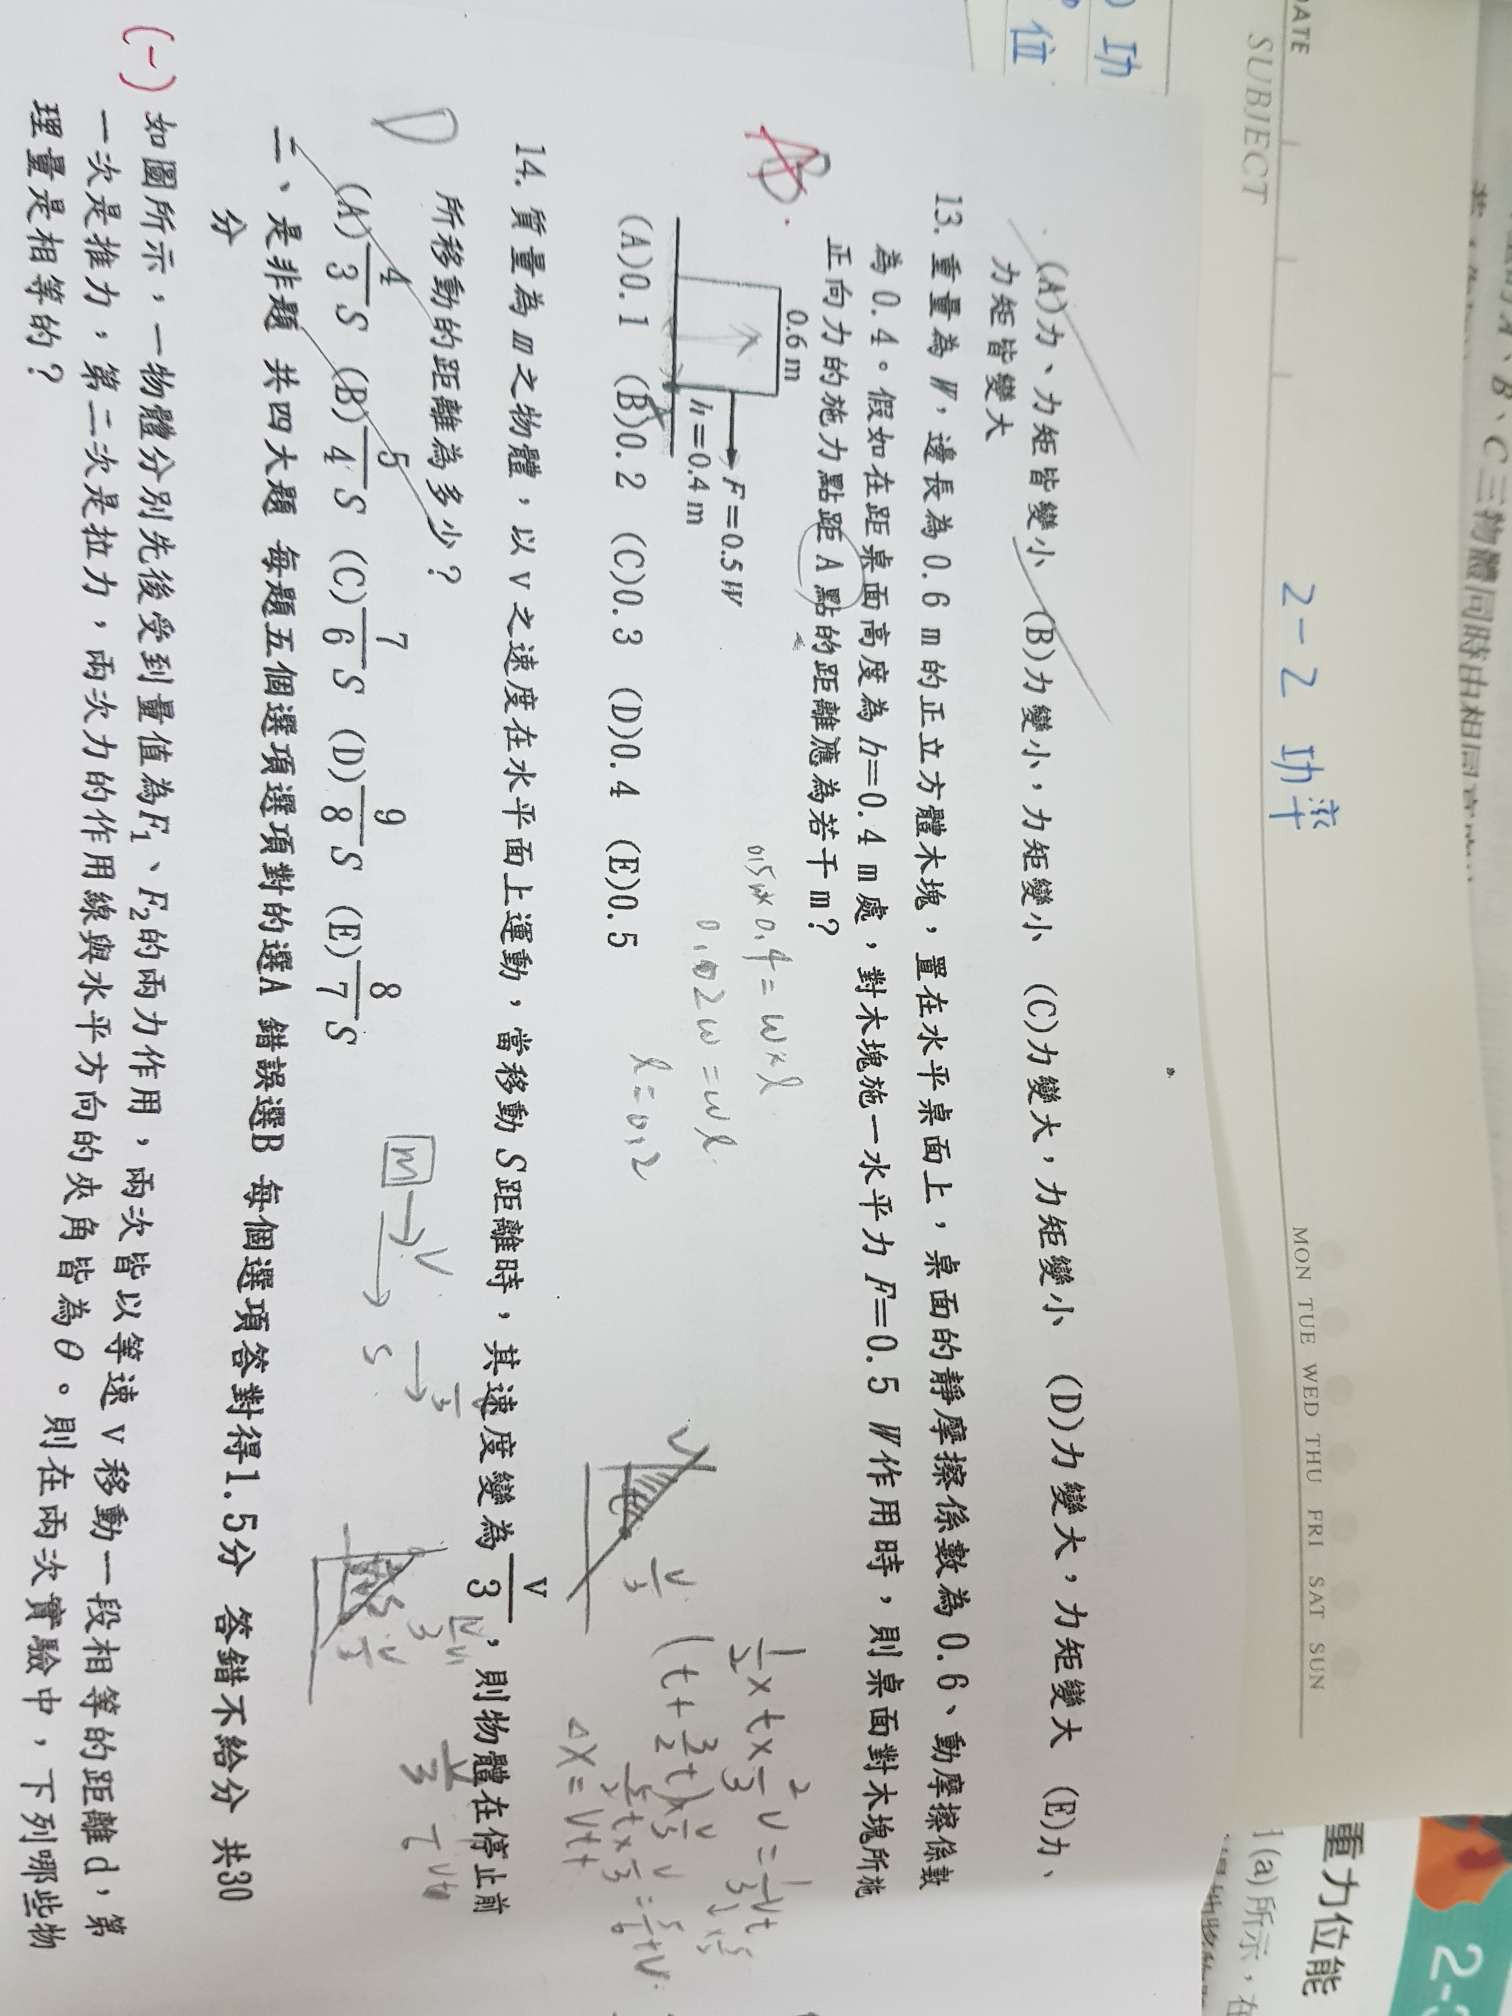 DATE
SUBJECT
2-2 功率
MON TUE WED THU FRI SAT SUN
功
位
重力位能
1(a)所示,在
2-
A、B、C三物體同時由相同
(A)力、力矩皆變小 (B)力變小,力矩變小 (C)力變大,力矩變小 (D)力變大,力矩變大 (E)力、
力矩皆變大
13. 重量為 W,邊長為 0.6 m 的正立方體木塊,置在水平桌面上,桌面的靜摩擦係數為 0.6、動摩擦係數
為 0.4。假如在距桌面高度為 h=0.4 m 處,對木塊施一水平力 F=0.5 W 作用時,則桌面對木塊所施
正向力的施力點距 A 點的距離應為若干 m?
0.6 m
F=0.5W
h=0.4 m
0.5W×0.4=W×l
0.02W=Wl
l=0.2
(A)0.1 (B)0.2 (C)0.3 (D)0.4 (E)0.5
14. 質量為 m 之物體,以 v 之速度在水平面上運動,當移動 S 距離時,其速度變為 v/3,則物體在停止前
所移動的距離為多少?
D
(A) 4/3 S (B) 5/4 S (C) 7/6 S (D) 9/8 S (E) 8/7 S
m
V
S
V
V/3
1/2×t×2/3V=1/3Vt
(t+3/2t)×V/3
5/2t×V/3=5/6tV
ΔX=Vt+
二、是非題 共四大題 每題五個選項選項對的選A 錯誤選B 每個選項答對得1.5分 答錯不給分 共30
分
(一) 如圖所示,一物體分別先後受到量值為F1、F2的兩力作用,兩次皆以等速 v 移動一段相等的距離 d,第
一次是推力,第二次是拉力,兩次力的作用線與水平方向的夾角皆為 θ。則在兩次實驗中,下列哪些物
理量是相等的?